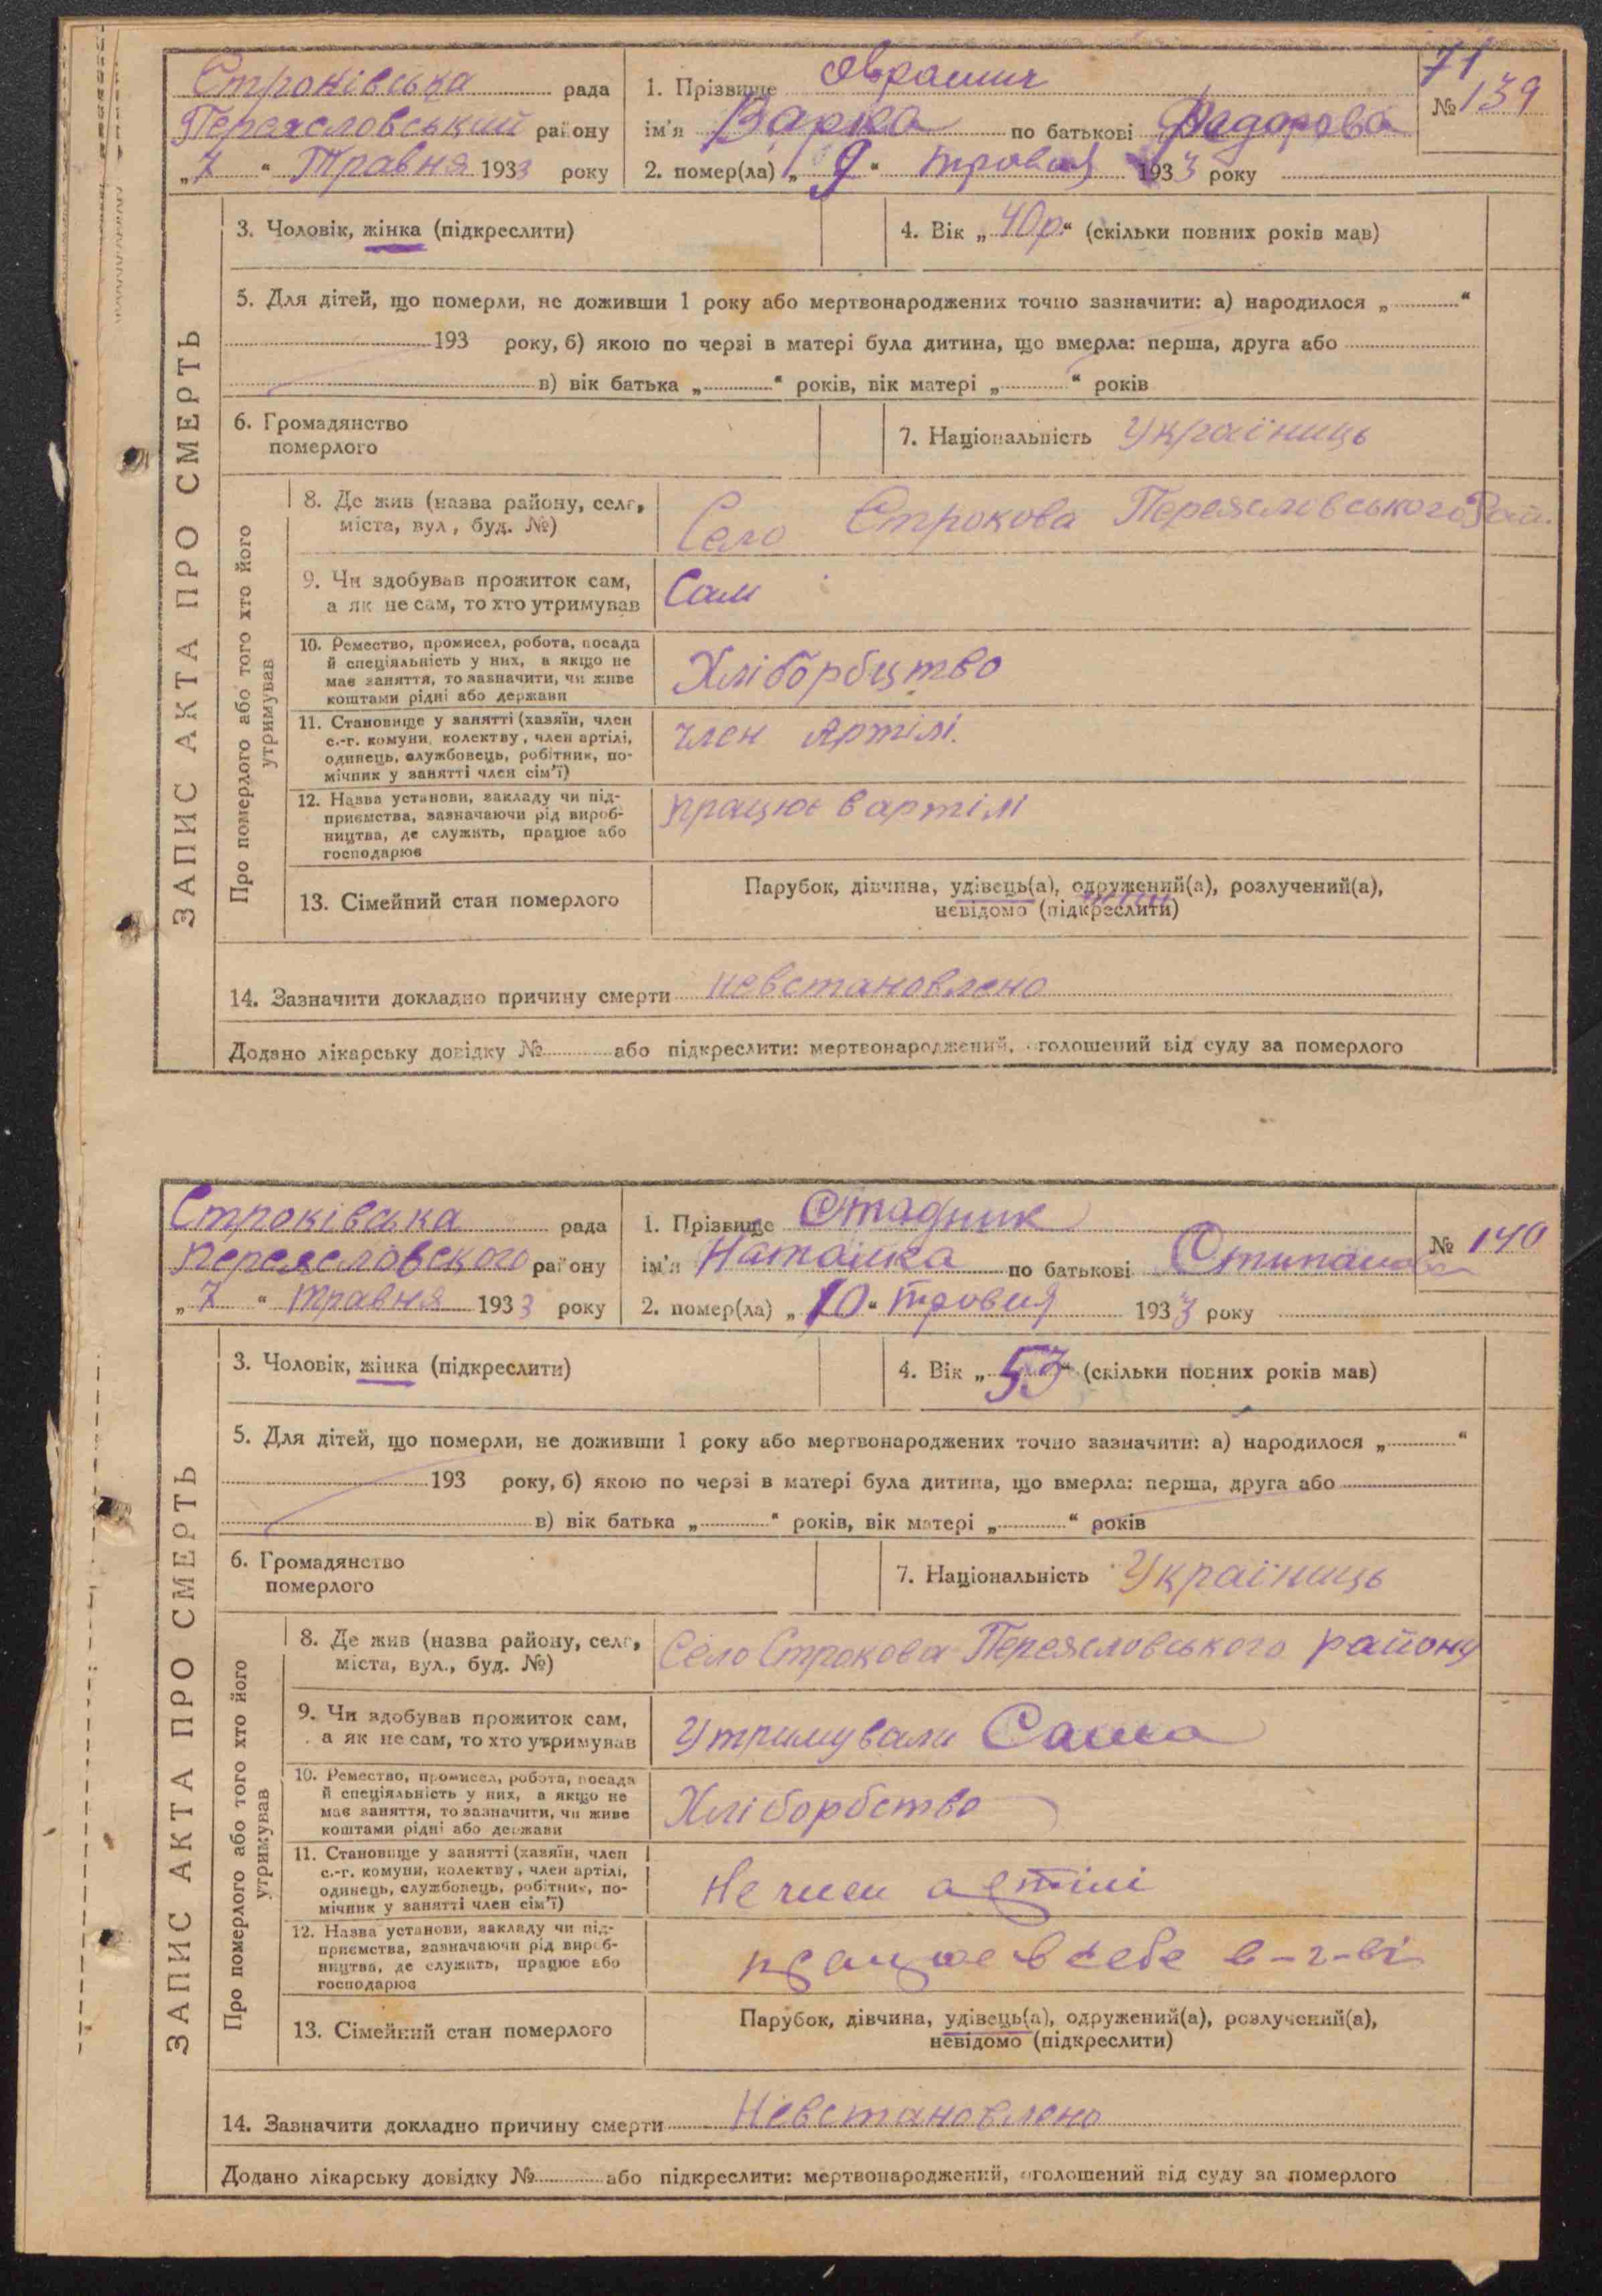 71
Строківська рада
1. Прізвище
№ 139
Переясловський району
ім'я Варка по батькові Федорова
„7“ Травня 1933 року
2. помер(ла) „9“ тровня 1933 року
ЗАПИС АКТА ПРО СМЕРТЬ
3. Чоловік, жінка (підкреслити)
4. Вік „40р.“ (скільки повних років мав)
5. Для дітей, що померли, не доживши 1 року або мертвонароджених точно зазначити: а) народилося „ “
193 року, б) якою по черзі в матері була дитина, що вмерла: перша, друга або
в) вік батька „ “ років, вік матері „ “ років
6. Громадянство
померлого
7. Національність Україниць
Про померлого або того хто його
утримував
8. Де жив (назва району, села,
міста, вул, буд. №)
Село Строкова Переясловського Рай.
9. Чи здобував прожиток сам,
а як не сам, то хто утримував
Сам
10. Ремество, промисел, робота, посада
й спеціяльність у них, а якщо не
має заняття, то зазначити, чи живе
коштами рідні або держави
Хліборбцтво
11. Становище у занятті (хазяїн, член
с.-г. комуни, колектву, член артілі,
одинець, службовець, робітник, по-
мічник у занятті член сім'ї)
член Артілі.
12. Назва установи, закладу чи під-
приємства, зазначаючи рід вироб-
ництва, де служить, працює або
господарює
працює в артілі
13. Сімейний стан померлого
Парубок, дівчина, удівець(а), одружений(а), розлучений(а),
невідомо (підкреслити)
14. Зазначити докладно причину смерти невстановлено
Додано лікарську довідку № або підкреслити: мертвонароджений, оголошений від суду за померлого
Строківська рада
1. Прізвище Стадник
№ 140
переясловского району
ім'я Наталка по батькові Стипанова
„7“ травня 1933 року
2. помер(ла) „10“ тровня 1933 року
ЗАПИС АКТА ПРО СМЕРТЬ
3. Чоловік, жінка (підкреслити)
4. Вік „53“ (скільки повних років мав)
5. Для дітей, що померли, не доживши 1 року або мертвонароджених точно зазначити: а) народилося „ “
193 року, б) якою по черзі в матері була дитина, що вмерла: перша, друга або
в) вік батька „ “ років, вік матері „ “ років
6. Громадянство
померлого
7. Національність Україниць
Про померлого або того хто його
утримував
8. Де жив (назва району, села,
міста, вул., буд. №)
Село Строкова Переясловського району
9. Чи здобував прожиток сам,
а як не сам, то хто утримував
Утримували Сама
10. Ремество, промисел, робота, посада
й спеціяльність у них, а якщо не
має заняття, то зазначити, чи живе
коштами рідні або держави
Хліборбство
11. Становище у занятті (хазяїн, член
с.-г. комуни, колектву, член артілі,
одинець, службовець, робітник, по-
мічник у занятті член сім'ї)
Не член артілі
12. Назва установи, закладу чи під-
приємства, зазначаючи рід вироб-
ництва, де служить, працює або
господарює
працює в себе в-г-ві
13. Сімейний стан померлого
Парубок, дівчина, удівець(а), одружений(а), розлучений(а),
невідомо (підкреслити)
14. Зазначити докладно причину смерти Невстановлено
Додано лікарську довідку № або підкреслити: мертвонароджений, оголошений від суду за померлого